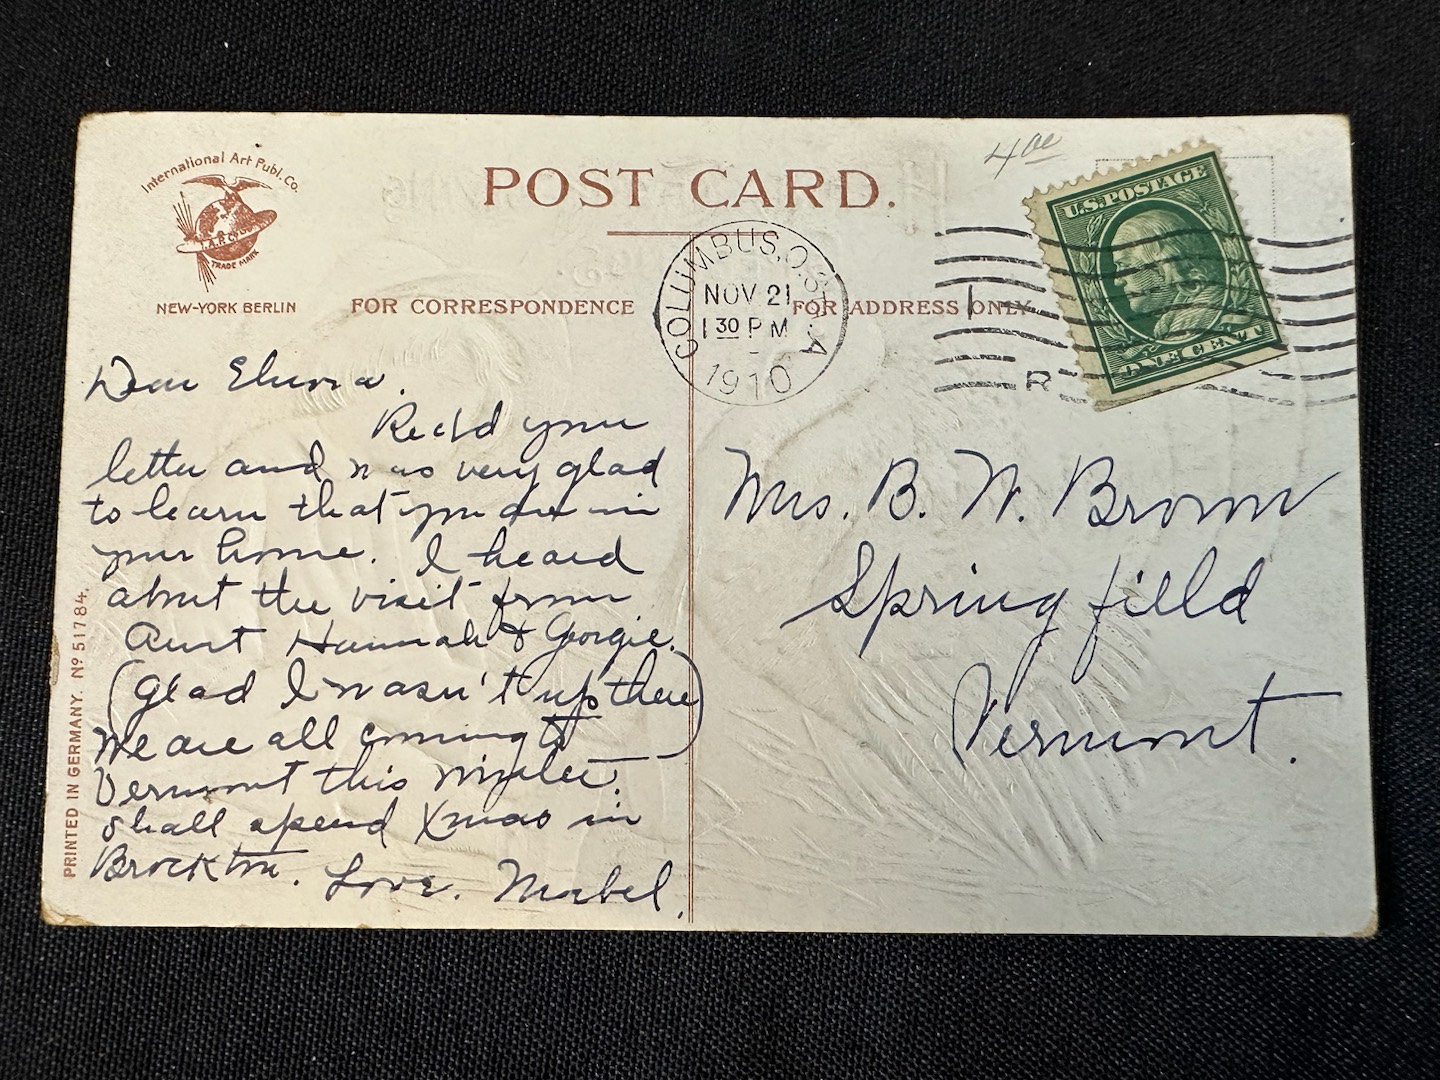 International Art Publ. Co.
I.A.P. Co.
TRADE MARK
NEW-YORK BERLIN
POST CARD.
FOR CORRESPONDENCE
FOR ADDRESS ONLY
4 00
U.S. POSTAGE
ONE CENT
COLUMBUS, O. STA. A
NOV 21
1 30 PM
1910
1
R
Dear
Rec'd your
letter and was very glad
to learn that you are in
your home. I heard
about the visit from
Aunt Hannah & Georgie.
(Glad I wasn't up there)
We are all coming to
Vermont this winter.
Shall spend Xmas in
Brockton. Love. Mabel.
Mrs. B. W. Brown
Springfield
Vermont.
PRINTED IN GERMANY. No 51784.